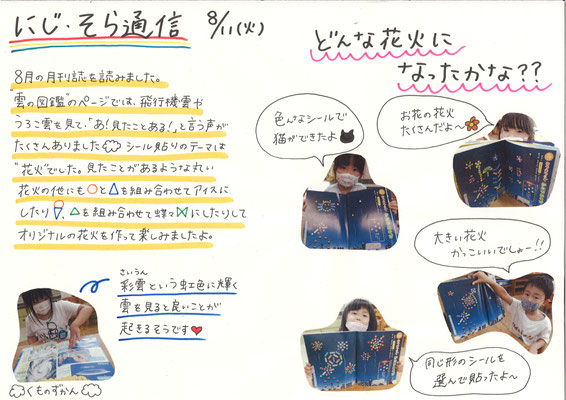 にじ・そら通信 8/11(火)
8月の月刊誌を読みました。
"雲の図鑑"のページでは、飛行機雲や
うろこ雲を見て、「あ！見たことある！」と言う声が
たくさんありました シール貼りのテーマは
"花火"でした。見たことがあるような丸い
花火の他にも○と△を組み合わせてアイスに
したり、△を組み合わせて蝶々にしたりして
オリジナルの花火を作って楽しみましたよ。
さいうん
彩雲という虹色に輝く
雲を見ると良いことが
起きるそうです
くものずかん
どんな花火に
なったかな??
色んなシールで
猫ができたよ
お花の花火
たくさんだよ〜
大きい花火
かっこいいでしょー!!
同じ形のシールを
選んで貼ったよ〜